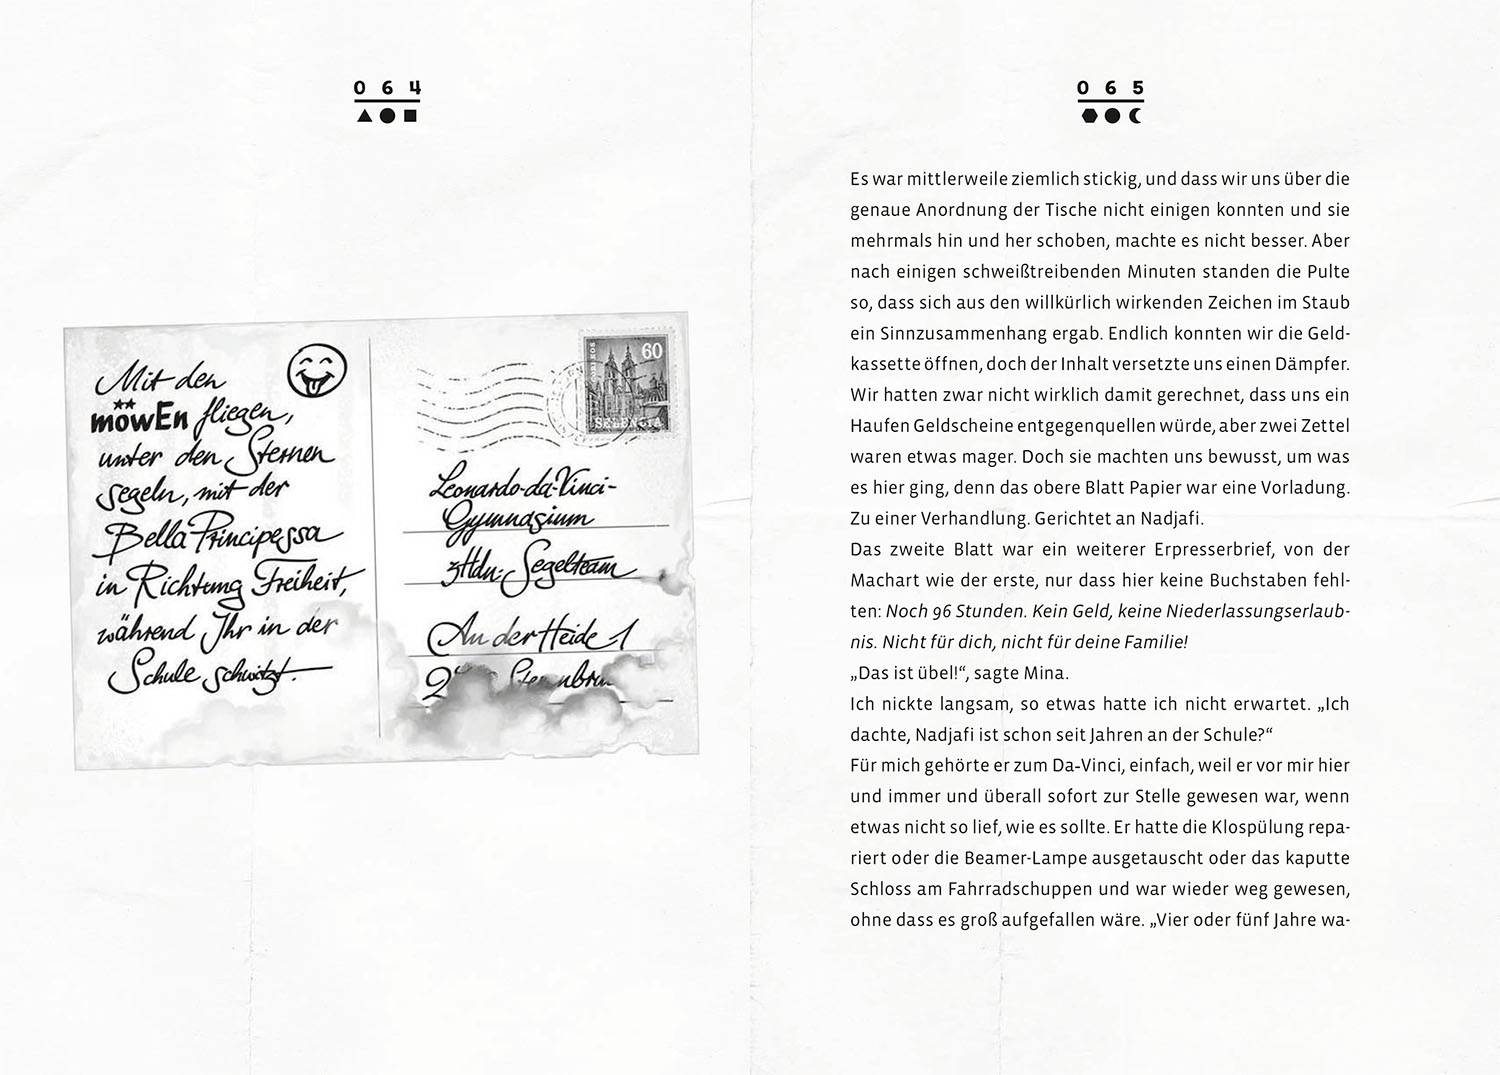 064
Mit den
möwEn fliegen,
unter den Sternen
segeln, mit der
Bella Principessa
in Richtung Freiheit,
während Ihr in der
Schule schwitzt.
60
Leonardo-da-Vinci-
Gymnasium
zHdn: Segelteam
An der Heide 1
065
Es war mittlerweile ziemlich stickig, und dass wir uns über die
genaue Anordnung der Tische nicht einigen konnten und sie
mehrmals hin und her schoben, machte es nicht besser. Aber
nach einigen schweißtreibenden Minuten standen die Pulte
so, dass sich aus den willkürlich wirkenden Zeichen im Staub
ein Sinnzusammenhang ergab. Endlich konnten wir die Geld-
kassette öffnen, doch der Inhalt versetzte uns einen Dämpfer.
Wir hatten zwar nicht wirklich damit gerechnet, dass uns ein
Haufen Geldscheine entgegenquellen würde, aber zwei Zettel
waren etwas mager. Doch sie machten uns bewusst, um was
es hier ging, denn das obere Blatt Papier war eine Vorladung.
Zu einer Verhandlung. Gerichtet an Nadjafi.
Das zweite Blatt war ein weiterer Erpresserbrief, von der
Machart wie der erste, nur dass hier keine Buchstaben fehl-
ten: Noch 96 Stunden. Kein Geld, keine Niederlassungserlaub-
nis. Nicht für dich, nicht für deine Familie!
„Das ist übel!“, sagte Mina.
Ich nickte langsam, so etwas hatte ich nicht erwartet. „Ich
dachte, Nadjafi ist schon seit Jahren an der Schule?“
Für mich gehörte er zum Da-Vinci, einfach, weil er vor mir hier
und immer und überall sofort zur Stelle gewesen war, wenn
etwas nicht so lief, wie es sollte. Er hatte die Klospülung repa-
riert oder die Beamer-Lampe ausgetauscht oder das kaputte
Schloss am Fahrradschuppen und war wieder weg gewesen,
ohne dass es groß aufgefallen wäre. „Vier oder fünf Jahre wa-